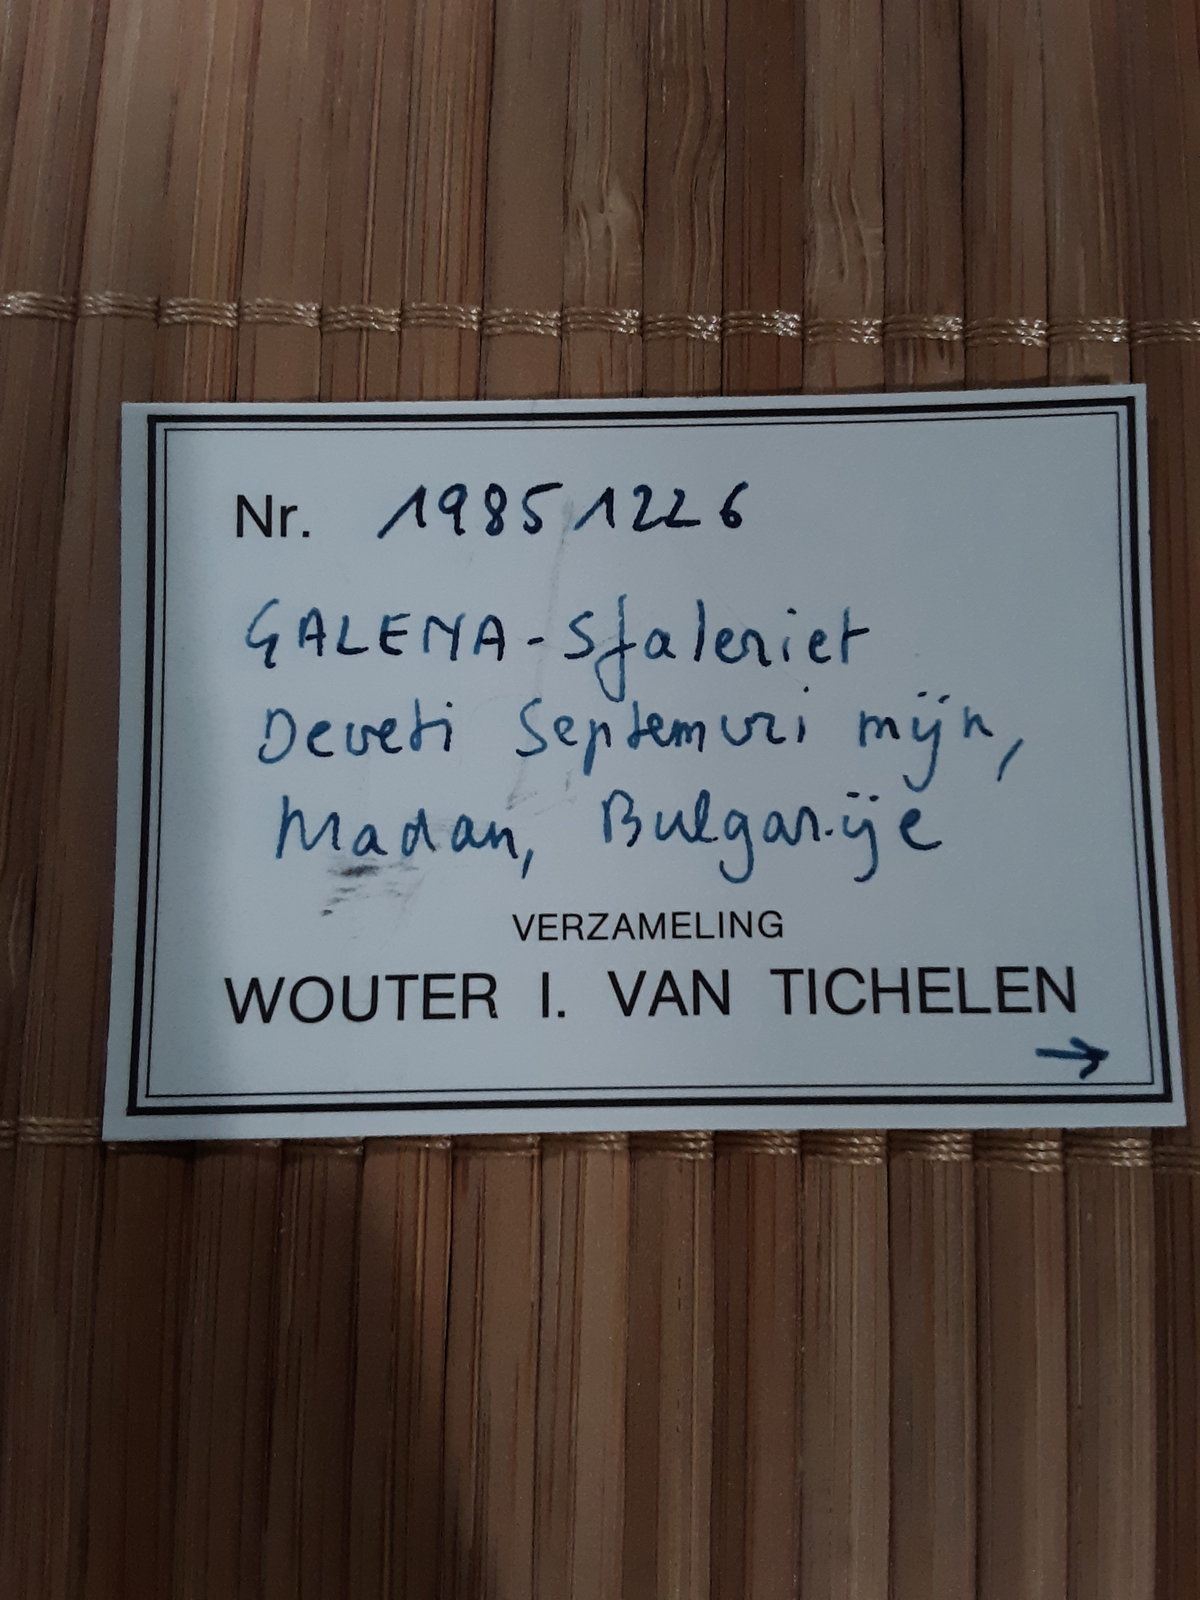 Nr. 19851226
GALENA - Sfaleriet
Deveti Septemvri mijn,
Madan, Bulgarije
VERZAMELING
WOUTER I. VAN TICHELEN
→